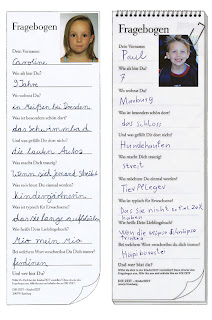 Fragebogen
Dein Vorname:
Caroline
Wie alt bist Du?
9 Jahre
Wo wohnst Du?
in Meißen bei Dresden
Was ist besonders schön dort?
das Schwimmbad
Und was gefällt Dir dort nicht?
die lauten Autos
Was macht Dich traurig?
Wenn sich jemand streitet
Was möchtest Du einmal werden?
Kindergärtnerin
Was ist typisch für Erwachsene?
das sie lange aufbleiben
Wie heißt Dein Lieblingsbuch?
Mio mein Mio
Bei welchem Wort verschreibst du dich immer?
Und wer bist Du?
Fragebogen
Dein Vorname:
Paul
Wie alt bist Du?
7
Wo wohnst Du?
Marburg
Was ist besonders schön dort?
das Schloss
Und was gefällt Dir dort nicht?
Hundehaufen
Was macht Dich traurig?
Streit
Was möchtest Du einmal werden?
Tierpfleger
Was ist typisch für Erwachsene?
Das sie nicht so viel Zeit
haben
Wie heißt Dein Lieblingsbuch?
Bei welchem Wort verschreibst du dich immer?
Und wer bist Du?